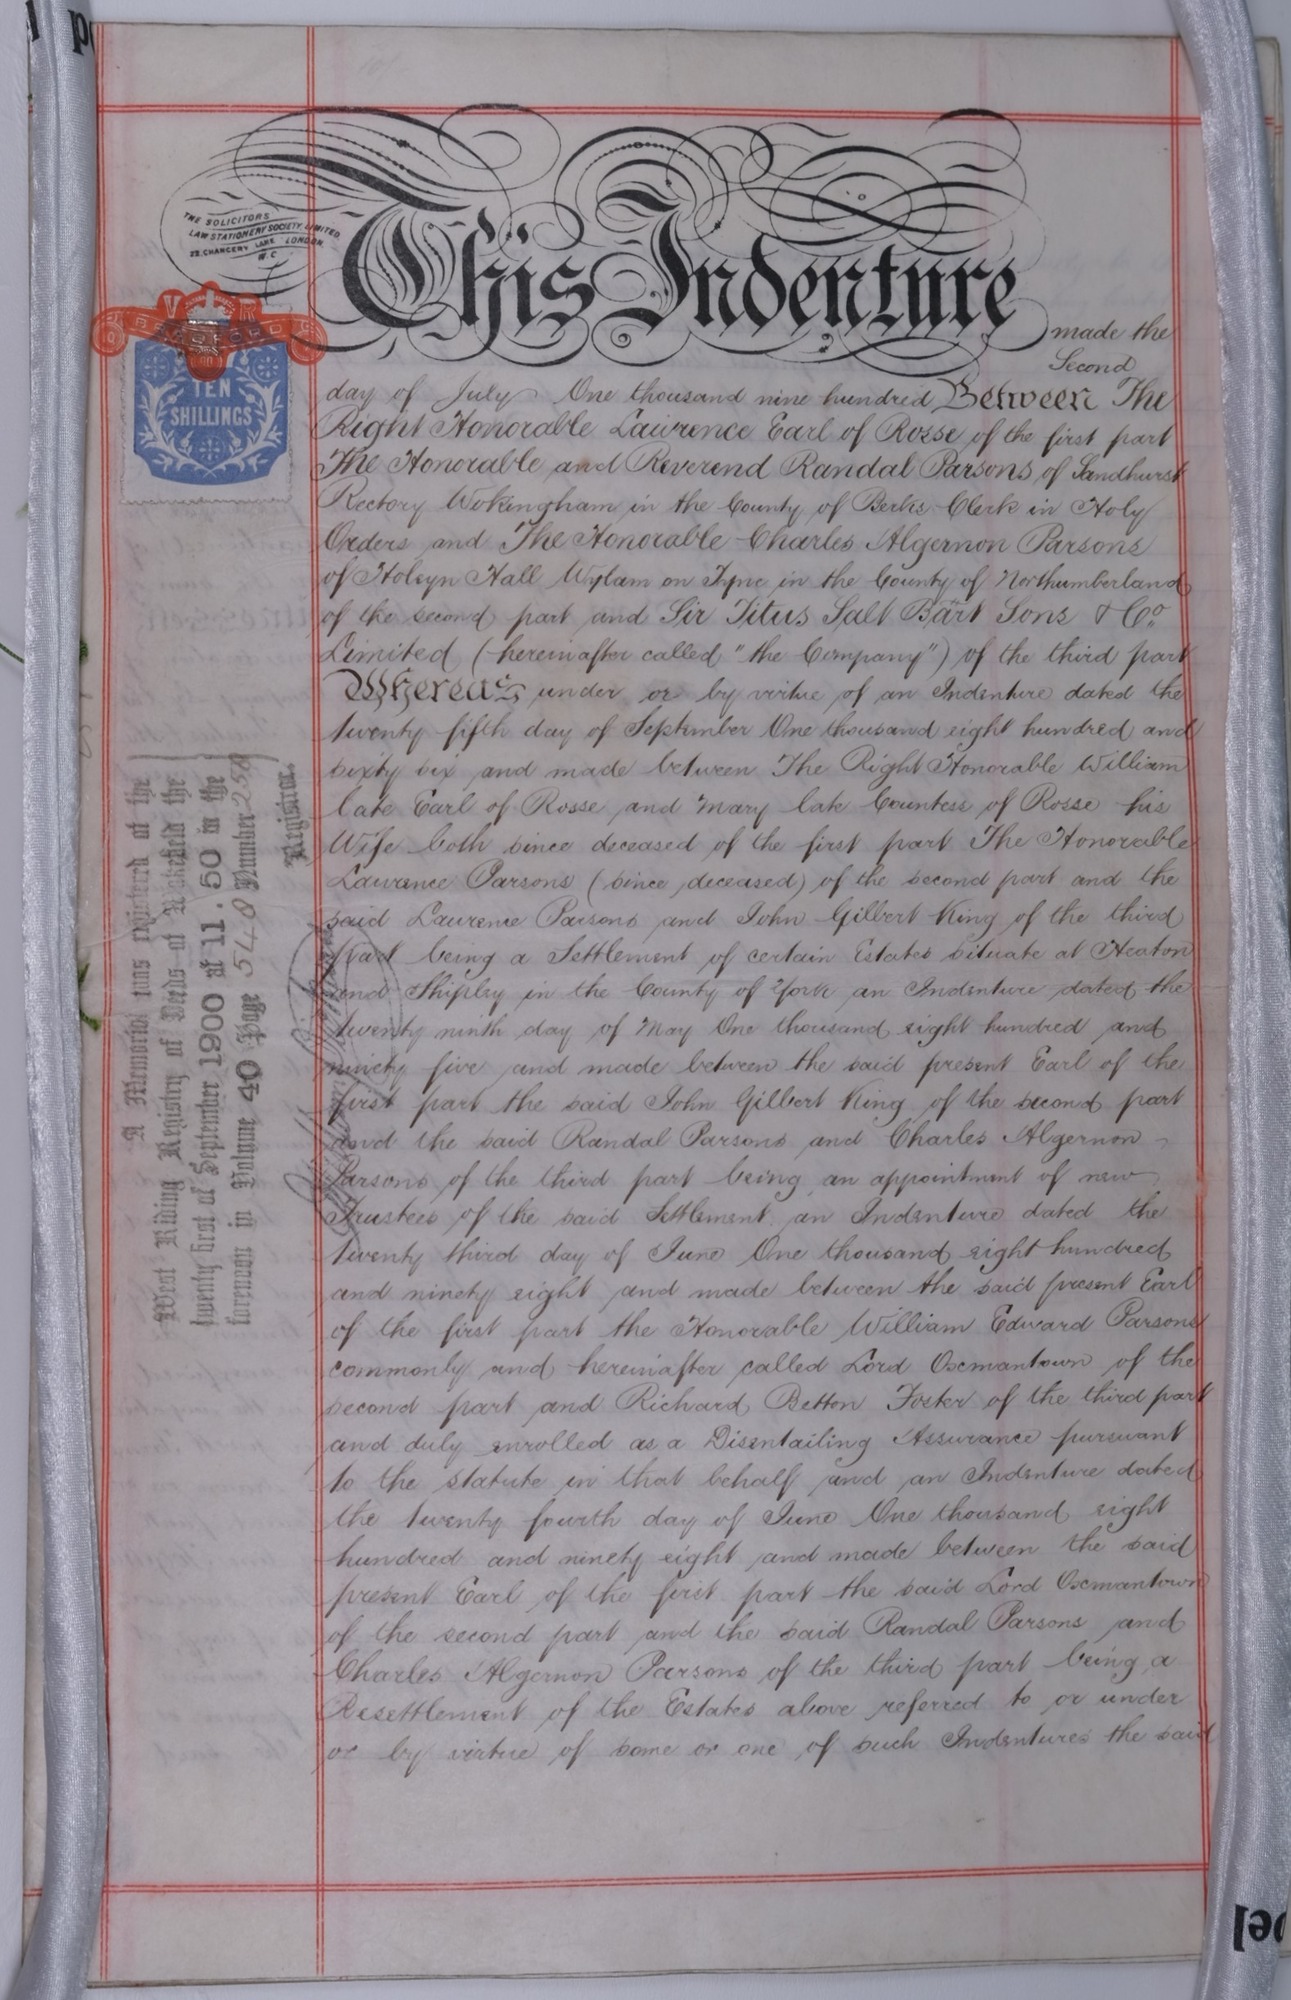 THE SOLICITORS
LAW STATIONERY SOCIETY, LIMITED.
22, CHANCERY LANE LONDON.
W.C
This Indenture made the
V R
TEN
SHILLINGS
Second
day of July One thousand nine hundred Between The
Right Honorable Lawrence Earl of Rosse of the first part
The Honorable and Reverend Randal Parsons of Sandhurst
Rectory Wokingham in the County of Berks Clerk in Holy
Orders and The Honorable Charles Algernon Parsons
of Holeyn Hall Wylam on Tyne in the County of Northumberland
of the second part and Sir Titus Salt Bart Sons & Co.
Limited (hereinafter called "the Company") of the third part
Whereas under or by virtue of an Indenture dated the
twenty fifth day of September One thousand eight hundred and
sixty six and made between The Right Honorable William
late Earl of Rosse and Mary late Countess of Rosse his
Wife both since deceased of the first part The Honorable
Lawrance Parsons (since deceased) of the second part and the
said Laurence Parsons and John Gilbert King of the third
part being a Settlement of certain Estates situate at Heaton
and Shipley in the County of York an Indenture dated the
twenty ninth day of May One thousand eight hundred and
ninety five and made between the said present Earl of the
first part the said John Gilbert King of the second part
and the said Randal Parsons and Charles Algernon
Parsons of the third part being an appointment of new
Trustees of the said Settlement an Indenture dated the
twenty third day of June One thousand eight hundred
and ninety eight and made between the said present Earl
of the first part the Honorable William Edward Parsons
commonly and hereinafter called Lord Oxmantown of the
second part and Richard Betton Foster of the third part
and duly enrolled as a Disentailing Assurance pursuant
to the statute in that behalf and an Indenture dated
the twenty fourth day of June One thousand eight
hundred and ninety eight and made between the said
present Earl of the first part the said Lord Oxmantown
of the second part and the said Randal Parsons and
Charles Algernon Parsons of the third part being a
Resettlement of the Estates above referred to or under
or by virtue of some or one of such Indentures the said
A Memorial was registered at the
West Riding Registry of Deeds at Wakefield the
twenty first of September 1900 at 11.50 in the
forenoon in Volume 40 Page 548 Number 258
Registrar.